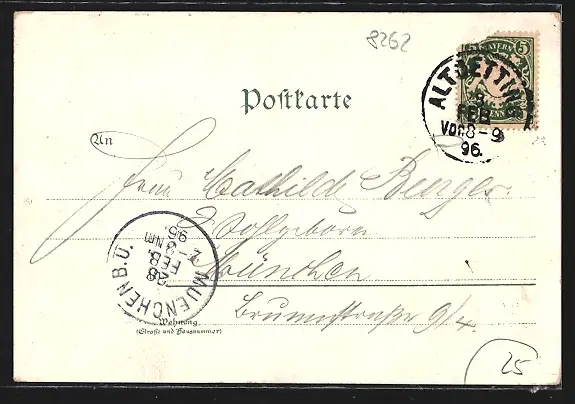 8262
BAYERN 5
PFENNIG
ALTOETTING
8
FEB
VOR 8-9
96.
Postkarte
An
Frau Mathilde Berger
Wohlgeboren
München
Brunnstraße 9/4.
MUENCHEN B.Ü.
FEB.
96
NM
Wohnung
(Straße und Hausnummer)
25